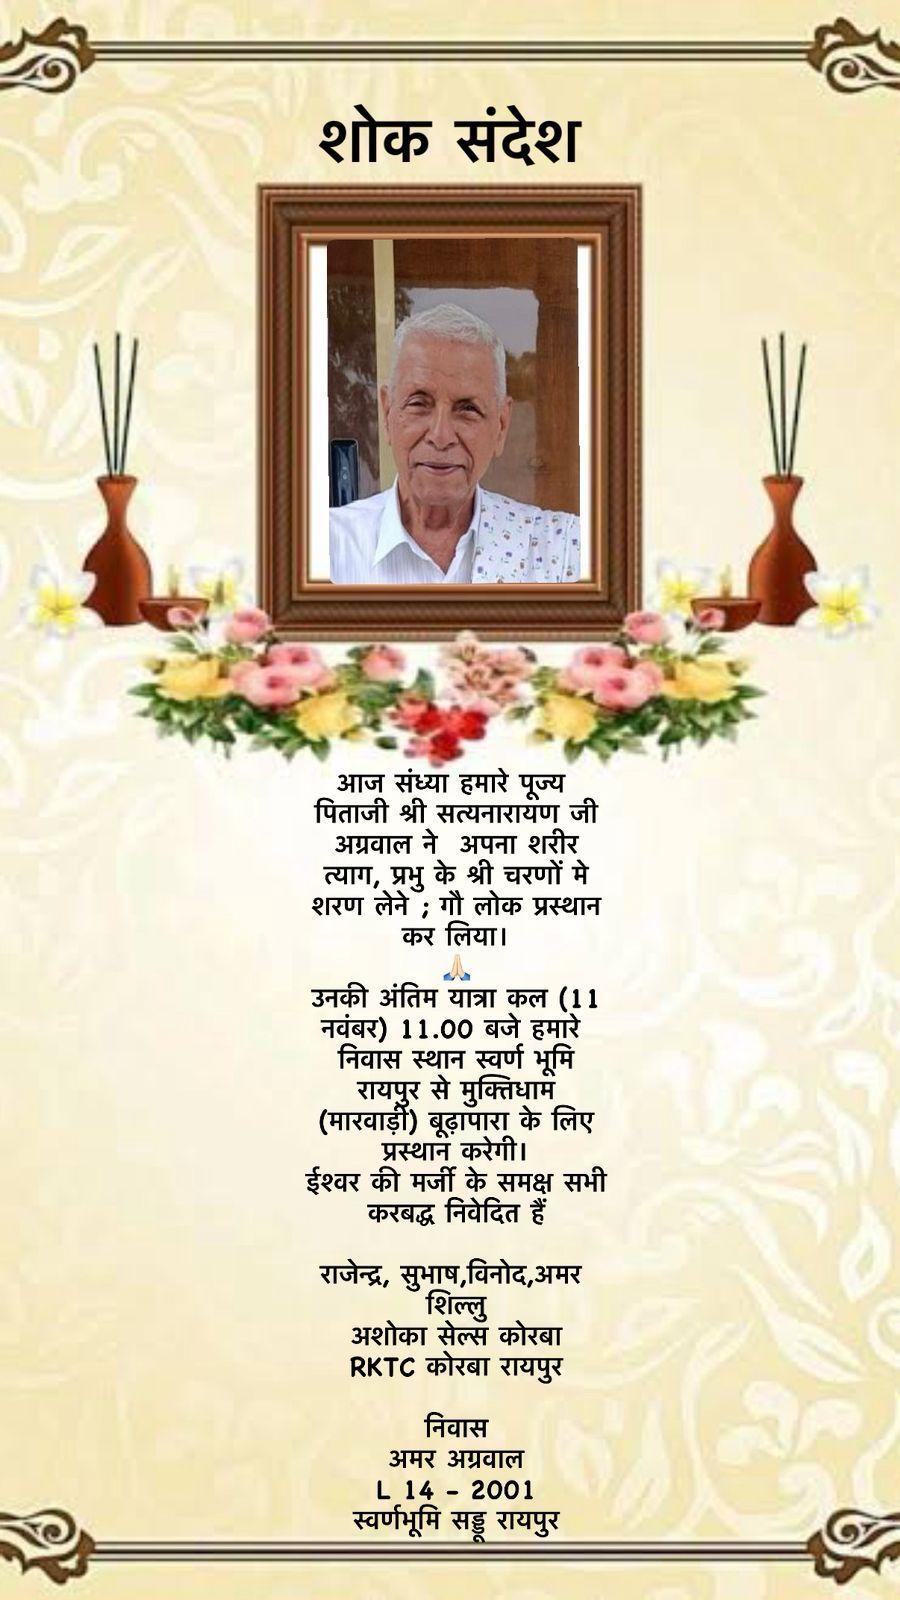 शोक संदेश
आज संध्या हमारे पूज्य
पिताजी श्री सत्यनारायण जी
अग्रवाल ने अपना शरीर
त्याग, प्रभु के श्री चरणों मे
शरण लेने ; गौ लोक प्रस्थान
कर लिया।
🙏🏻
उनकी अंतिम यात्रा कल (11
नवंबर) 11.00 बजे हमारे
निवास स्थान स्वर्ण भूमि
रायपुर से मुक्तिधाम
(मारवाड़ी) बूढ़ापारा के लिए
प्रस्थान करेगी।
ईश्वर की मर्जी के समक्ष सभी
करबद्ध निवेदित हैं
राजेन्द्र, सुभाष,विनोद,अमर
शिल्लु
अशोका सेल्स कोरबा
RKTC कोरबा रायपुर
निवास
अमर अग्रवाल
L 14 - 2001
स्वर्णभूमि सड्डू रायपुर